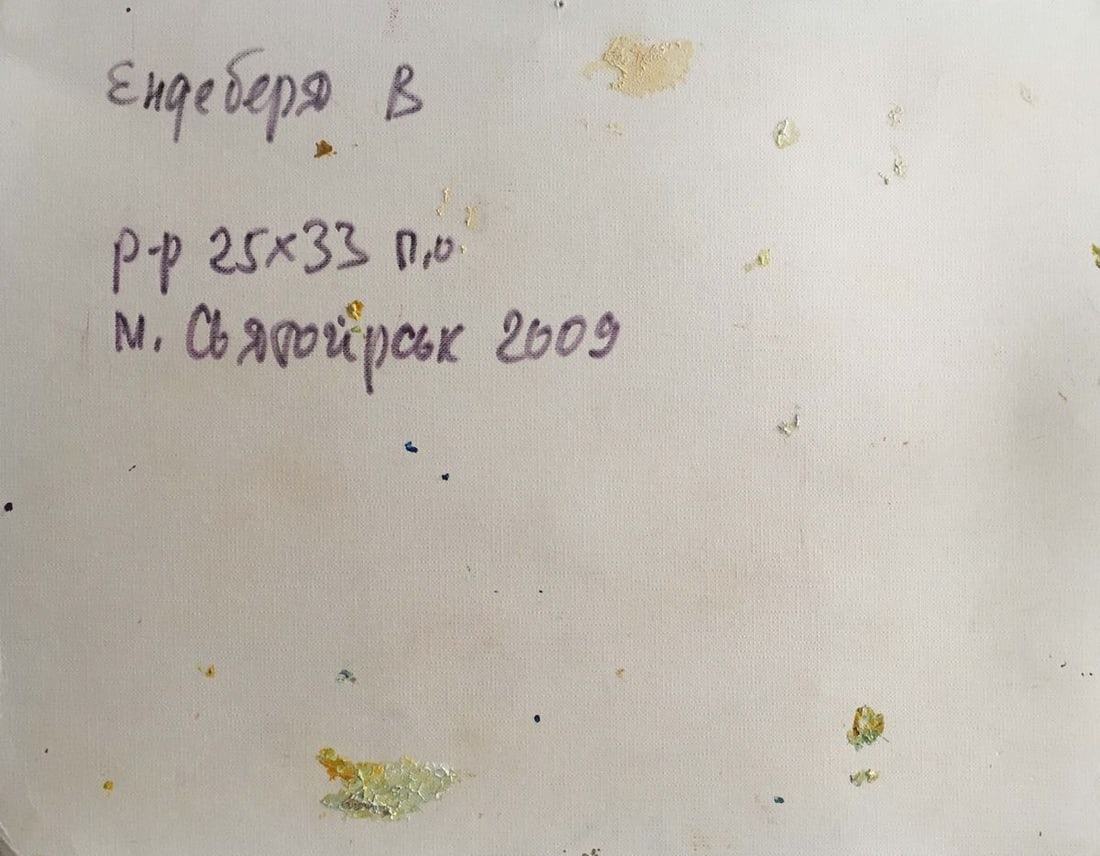 Ендеберя В
р-р 25х33 п.о.
м. Святогірськ 2009